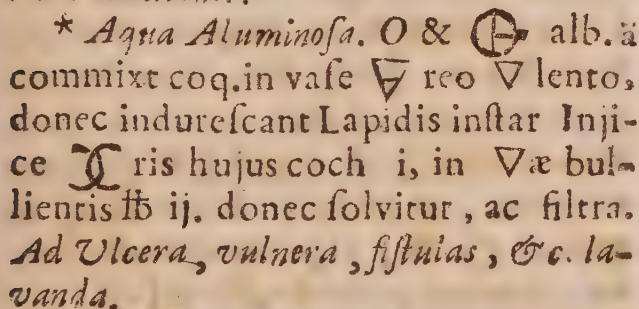 * Aqua Aluminoſa. O & alb. ä
commixt coq. in vaſe 🜃 reo ▽ lento,
donec indureſcant Lapidis inſtar Inji-
ce ris hujus coch i, in ▽æ bul-
lientis ℔ ij. donec ſolvitur, ac filtra.
Ad Ulcera, vulnera, fiſtulas, &c. la-
vanda.